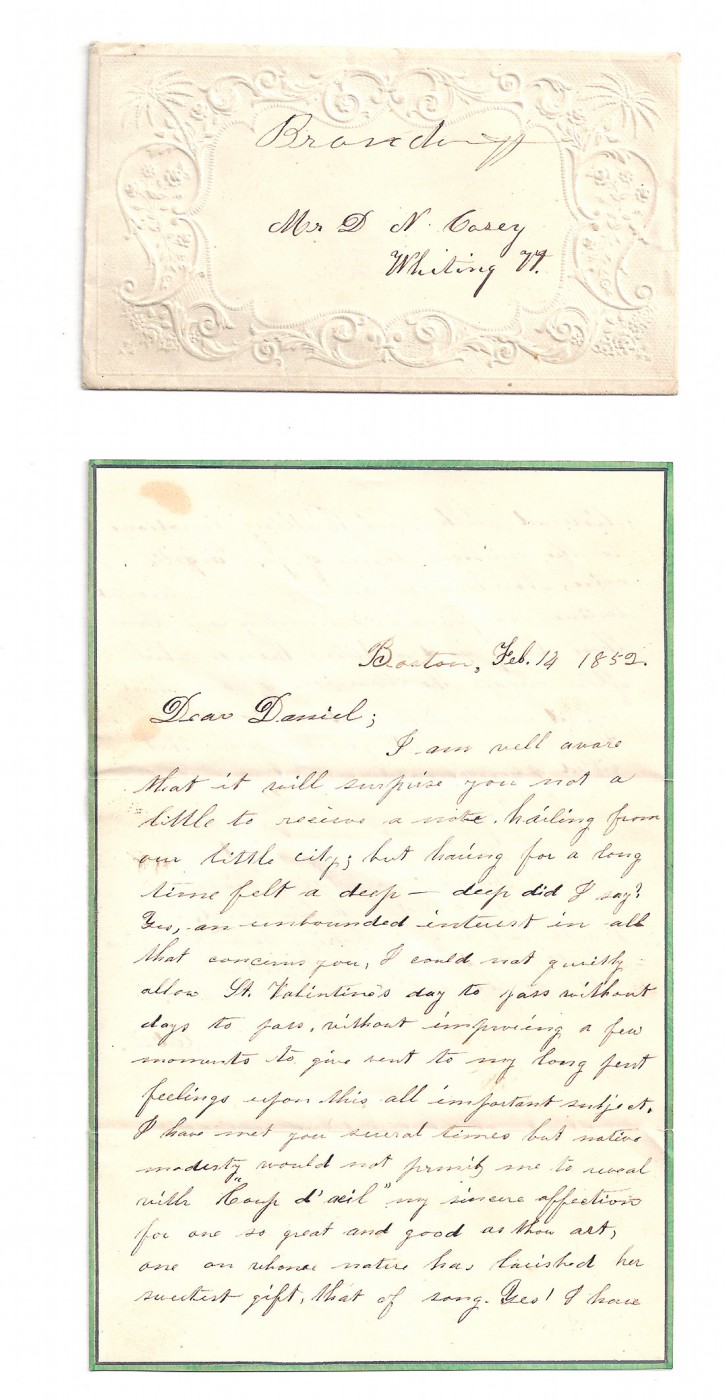 Brandon
Mr D N. Casey
Whiting Vt.
Boston, Feb. 14 1852.
Dear Daniel;
I am well aware
that it will surprise you not a
little to receive a note, hailing from
our little city; but having for a long
time felt a deep — deep did I say?
Yes, an unbounded interest in all
that concerns you, I could not quietly
allow St. Valintine's day to pass without
days to pass, without improving a few
moments to give vent to my long pent
feelings upon this all important subject.
I have met you several times but native
modesty would not permit me to reveal
with "Coup d'œil" my sincere affection
for one so great and good as thou art,
one on whome nature has lavished her
sweetest gift, that of song. Yes! I have